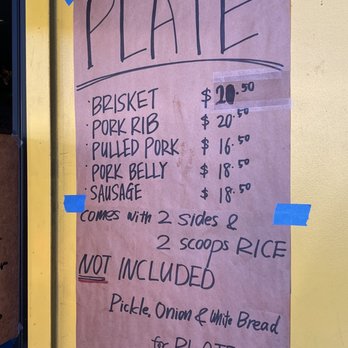 PLATE
· BRISKET $ 20.50
· PORK RIB $ 20.50
· PULLED PORK $ 16.50
· PORK BELLY $ 18.50
· SAUSAGE $ 18.50
comes with 2 sides &
2 scoops RICE
NOT INCLUDED
Pickle, Onion & White Bread
for PLATE